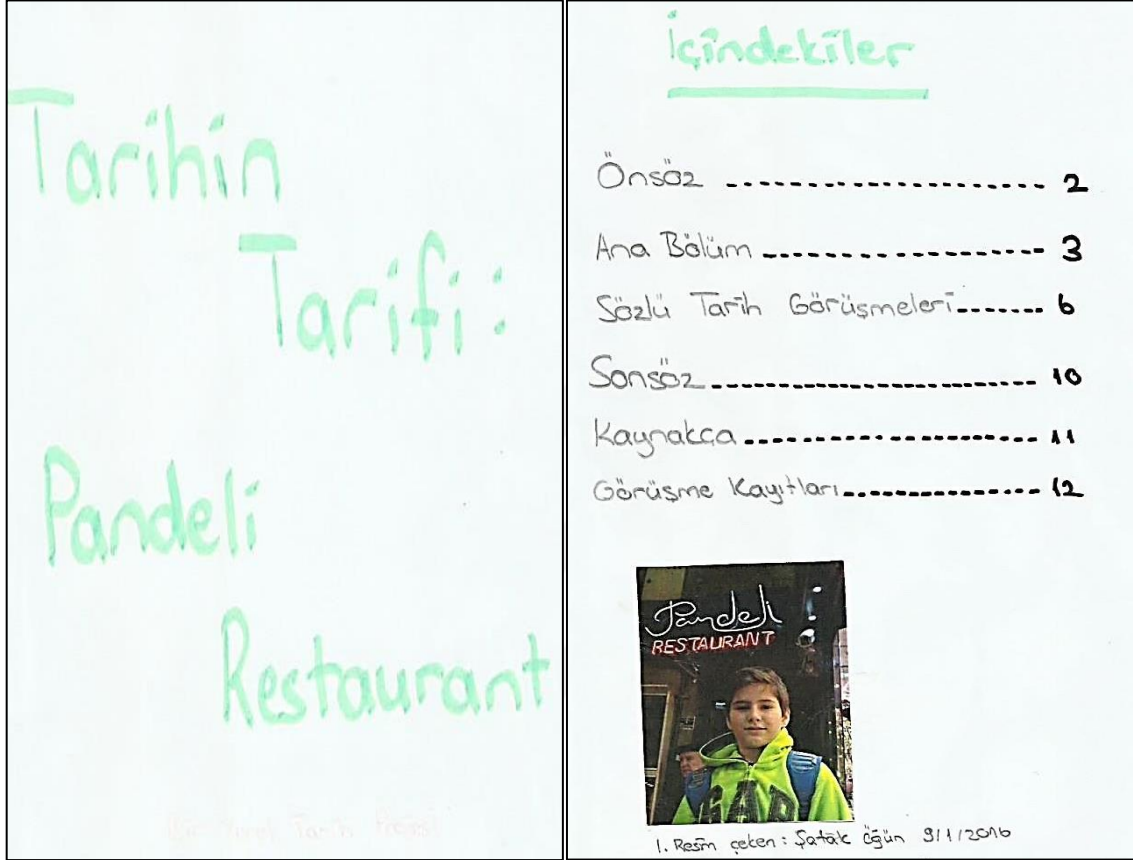 Tarihin
Tarifi:
Pandeli
Restaurant
Bir Yerel Tarih Projesi
İçindekiler
Önsöz ---------------------- 2
Ana Bölüm ------------------- 3
Sözlü Tarih Görüşmeleri ------- 6
Sonsöz ----------------------- 10
Kaynakça -------------------- 11
Görüşme Kayıtları -------------- 12
Pandeli
RESTAURANT
GAP
1. Resim çeken: Şafak Öğün 9/1/2016